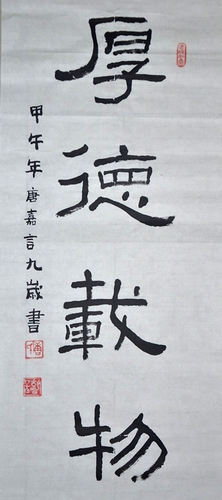 厚德載物
甲午年唐嘉言九歲書